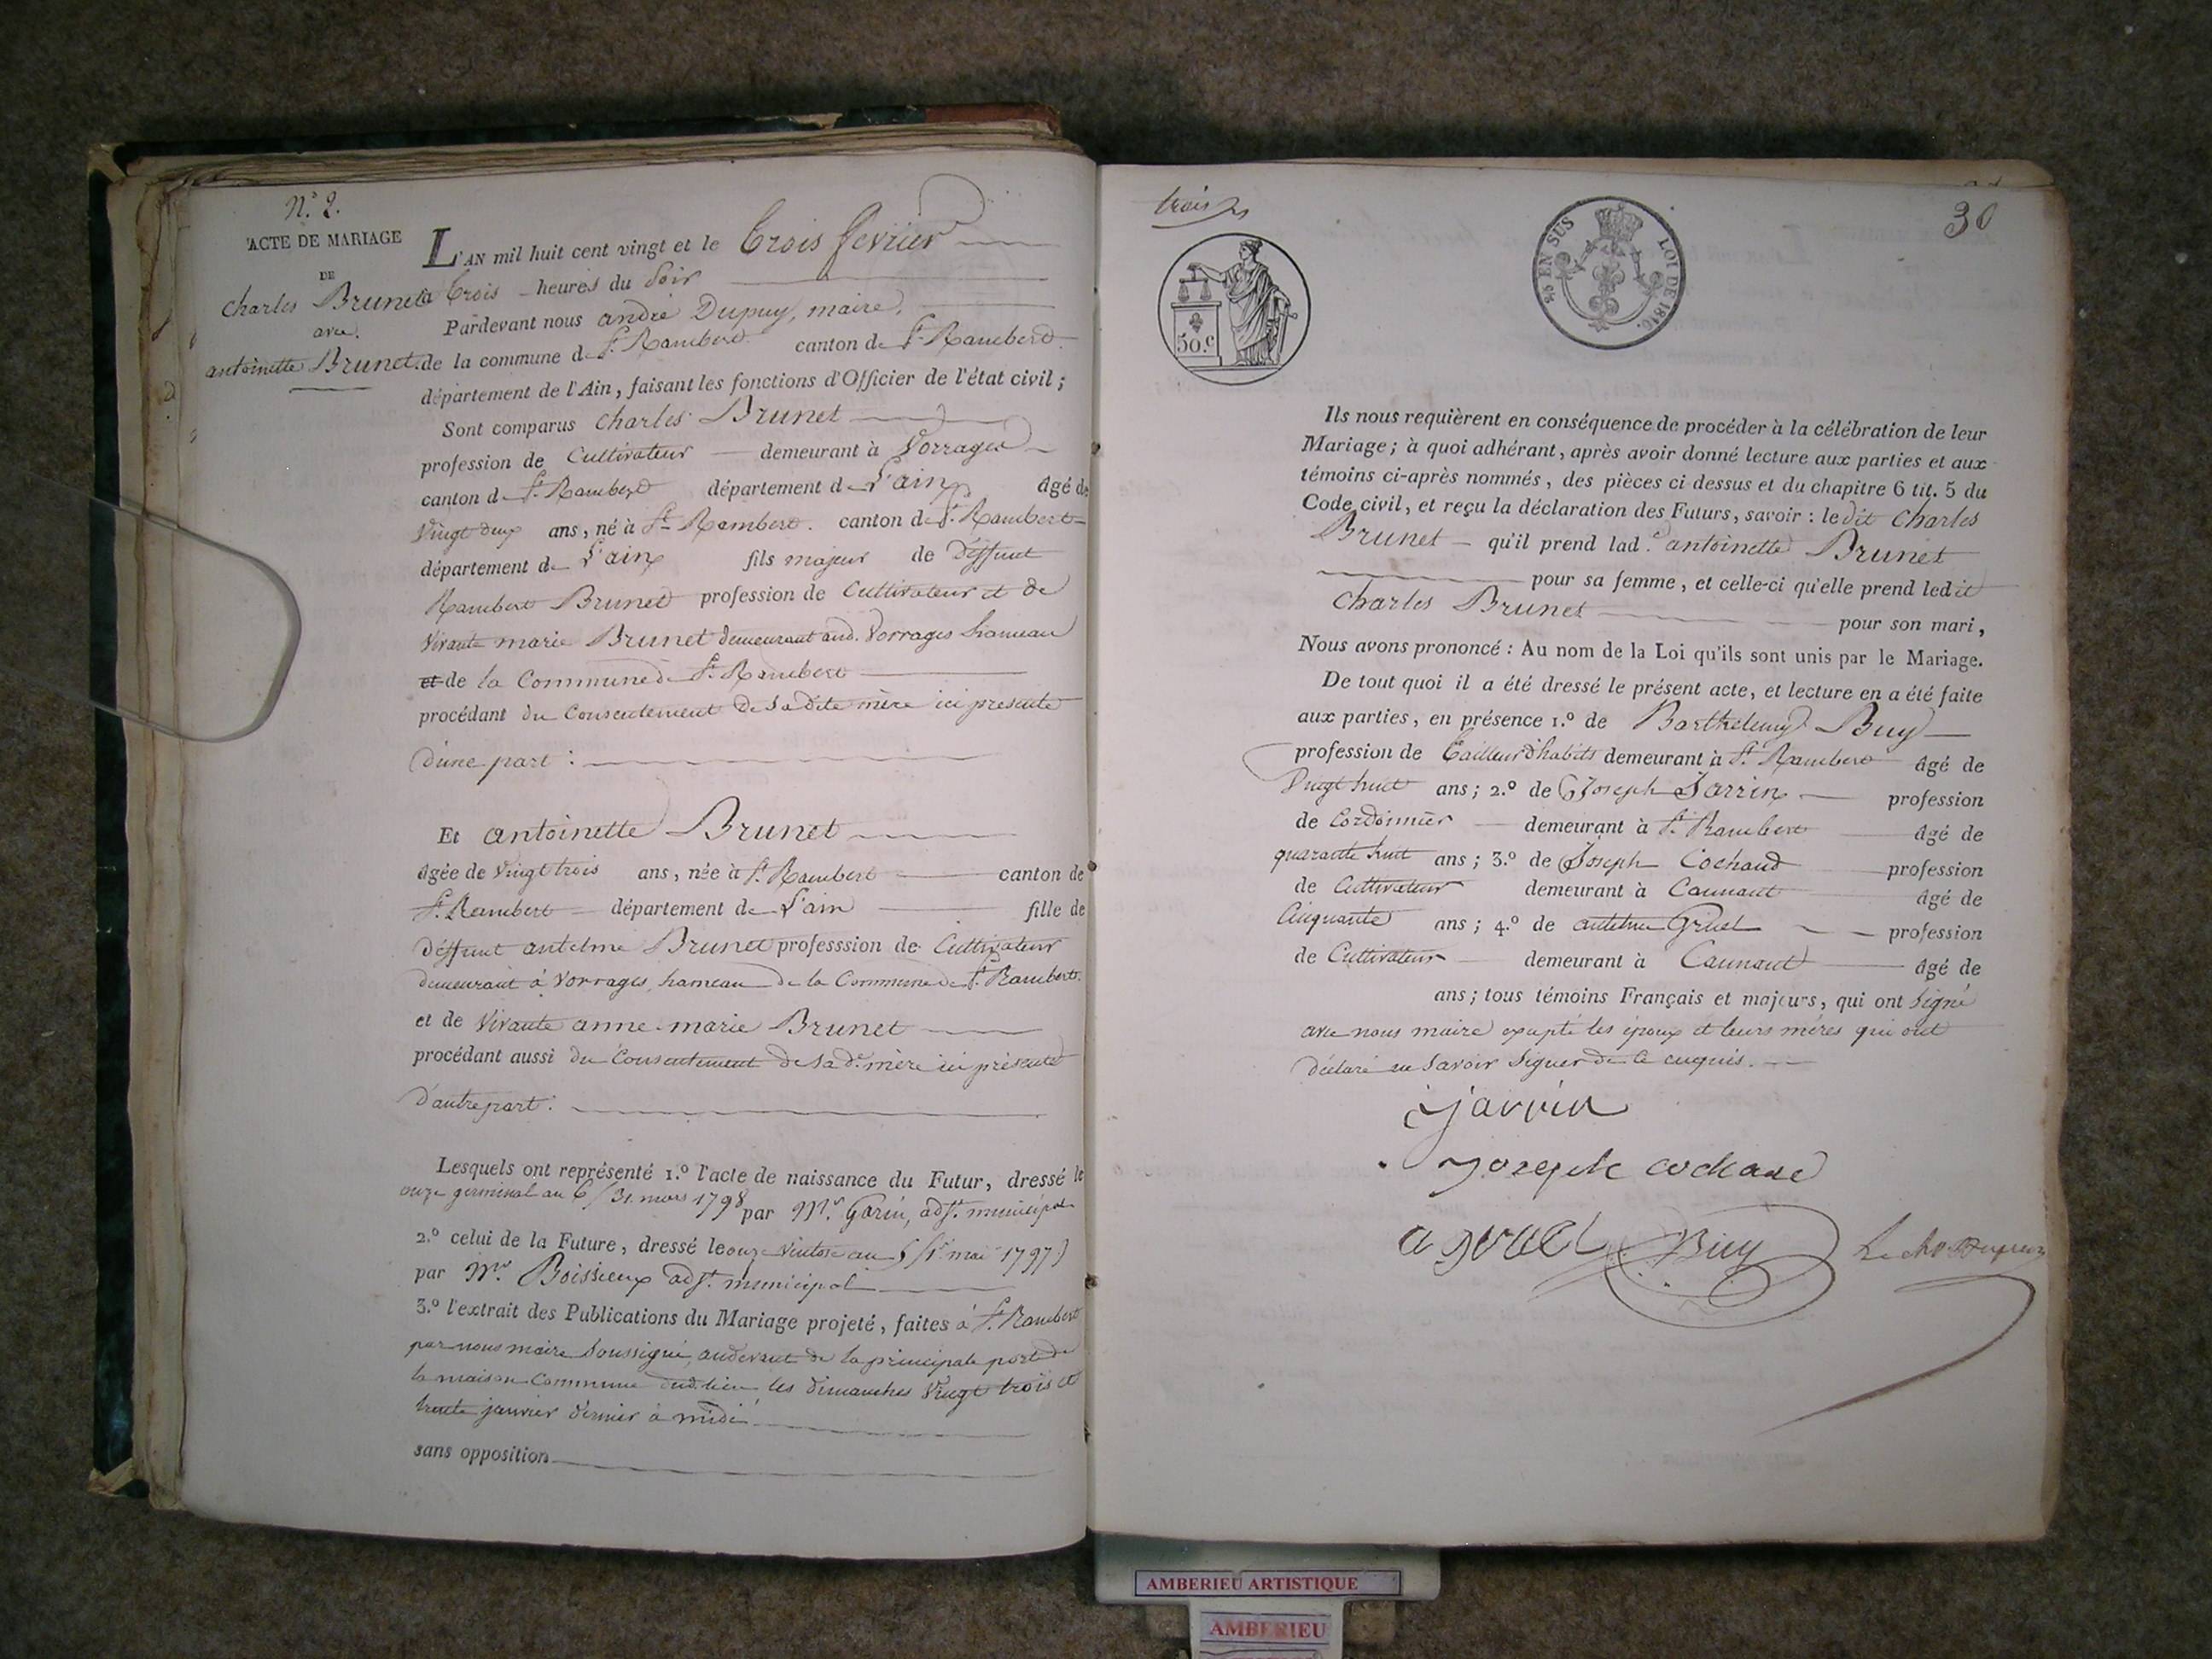 N.º 2.
ACTE DE MARIAGE
DE
Charles Brunet
avec
antoinette Brunet
L'AN mil huit cent vingt et le trois fevrier
à trois heures du soir
Pardevant nous andré Dupuy, maire,
de la commune de St. Rambert canton de St. Rambert
département de l'Ain, faisant les fonctions d'Officier de l'état civil;
Sont comparus Charles Brunet
profession de Cultivateur demeurant à Vorrages
canton de St. Rambert département de L'ain âgé de
Vingt deux ans, né à St. Rambert. canton de St. Rambert
département de L'ain fils majeur de déffunt
Rambert Brunet profession de Cultivateur et de
Vivante marie Brunet demeurant aud. Vorrages hameau
et de la Commune de St. Rambert
procédant du Consentement de sa dite mère ici présente
d'une part :
Et antoinette Brunet
âgée de Vingt trois ans, née à St. Rambert canton de
St. Rambert département de L'ain fille de
déffunt antelme Brunet professsion de Cultivateur
demeurant à Vorrages, hameau de la Commune de St. Rambert.
et de Vivante anne marie Brunet
procédant aussi du Consentement de sa de. mère ici présente
d'autre part :
Lesquels ont représenté 1.º l'acte de naissance du Futur, dressé le
onze germinal an 6 / 31 mars 1798 par Mr. Garin, adjt. municipal
2.º celui de la Future, dressé le onze Ventose an 5 (1r mai 1797)
par Mr. Boissieux adjt. municipal
3.º l'extrait des Publications du Mariage projeté, faites à St. Rambert
par nous maire soussigné, audevant de la principale porte de
la maison Commune dud. lieu les dimanches Vingt trois et
trente janvier dernier à midi
sans opposition
trois
30
50.c
EN SUS
LOI DE 1816.
Ils nous requièrent en conséquence de procéder à la célébration de leur
Mariage; à quoi adhérant, après avoir donné lecture aux parties et aux
témoins ci-après nommés, des pièces ci dessus et du chapitre 6 tit. 5 du
Code civil, et reçu la déclaration des Futurs, savoir : ledit Charles
Brunet qu'il prend lad.e antoinette Brunet
pour sa femme, et celle-ci qu'elle prend ledit
Charles Brunet pour son mari,
Nous avons prononcé : Au nom de la Loi qu'ils sont unis par le Mariage.
De tout quoi il a été dressé le présent acte, et lecture en a été faite
aux parties, en présence 1.º de Barthelemy Buy
profession de tailleur d'habits demeurant à St. Rambert âgé de
Vingt huit ans; 2.º de Joseph Jarrin profession
de Cordonnier demeurant à St. Rambert âgé de
quarante huit ans; 3.º de Joseph Cochaud profession
de Cultivateur demeurant à âgé de
Cinquante ans; 4.º de antelme Gruel profession
de Cultivateur demeurant à âgé de
ans; tous témoins Français et majeurs, qui ont signé
avec nous maire exepté les époux et leurs mères qui ont
déclaré ne savoir signer de ce enquis.
jarrin
joseph cochaud
a gruel Buy Dupuy
AMBERIEU ARTISTIQUE
AMBERIEU